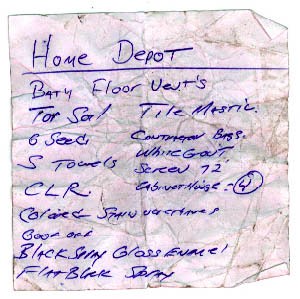 Home Depot
Bath Floor Vent's
Top Soil Tile Mastic.
6 Seeds Contractor Bags.
S Towels White Grout
CLR. Screen 72"
Cabinet Hinge = 4
Colored Stain
Goof off
Black Spray Gloss Enamel
Flat Black Spray